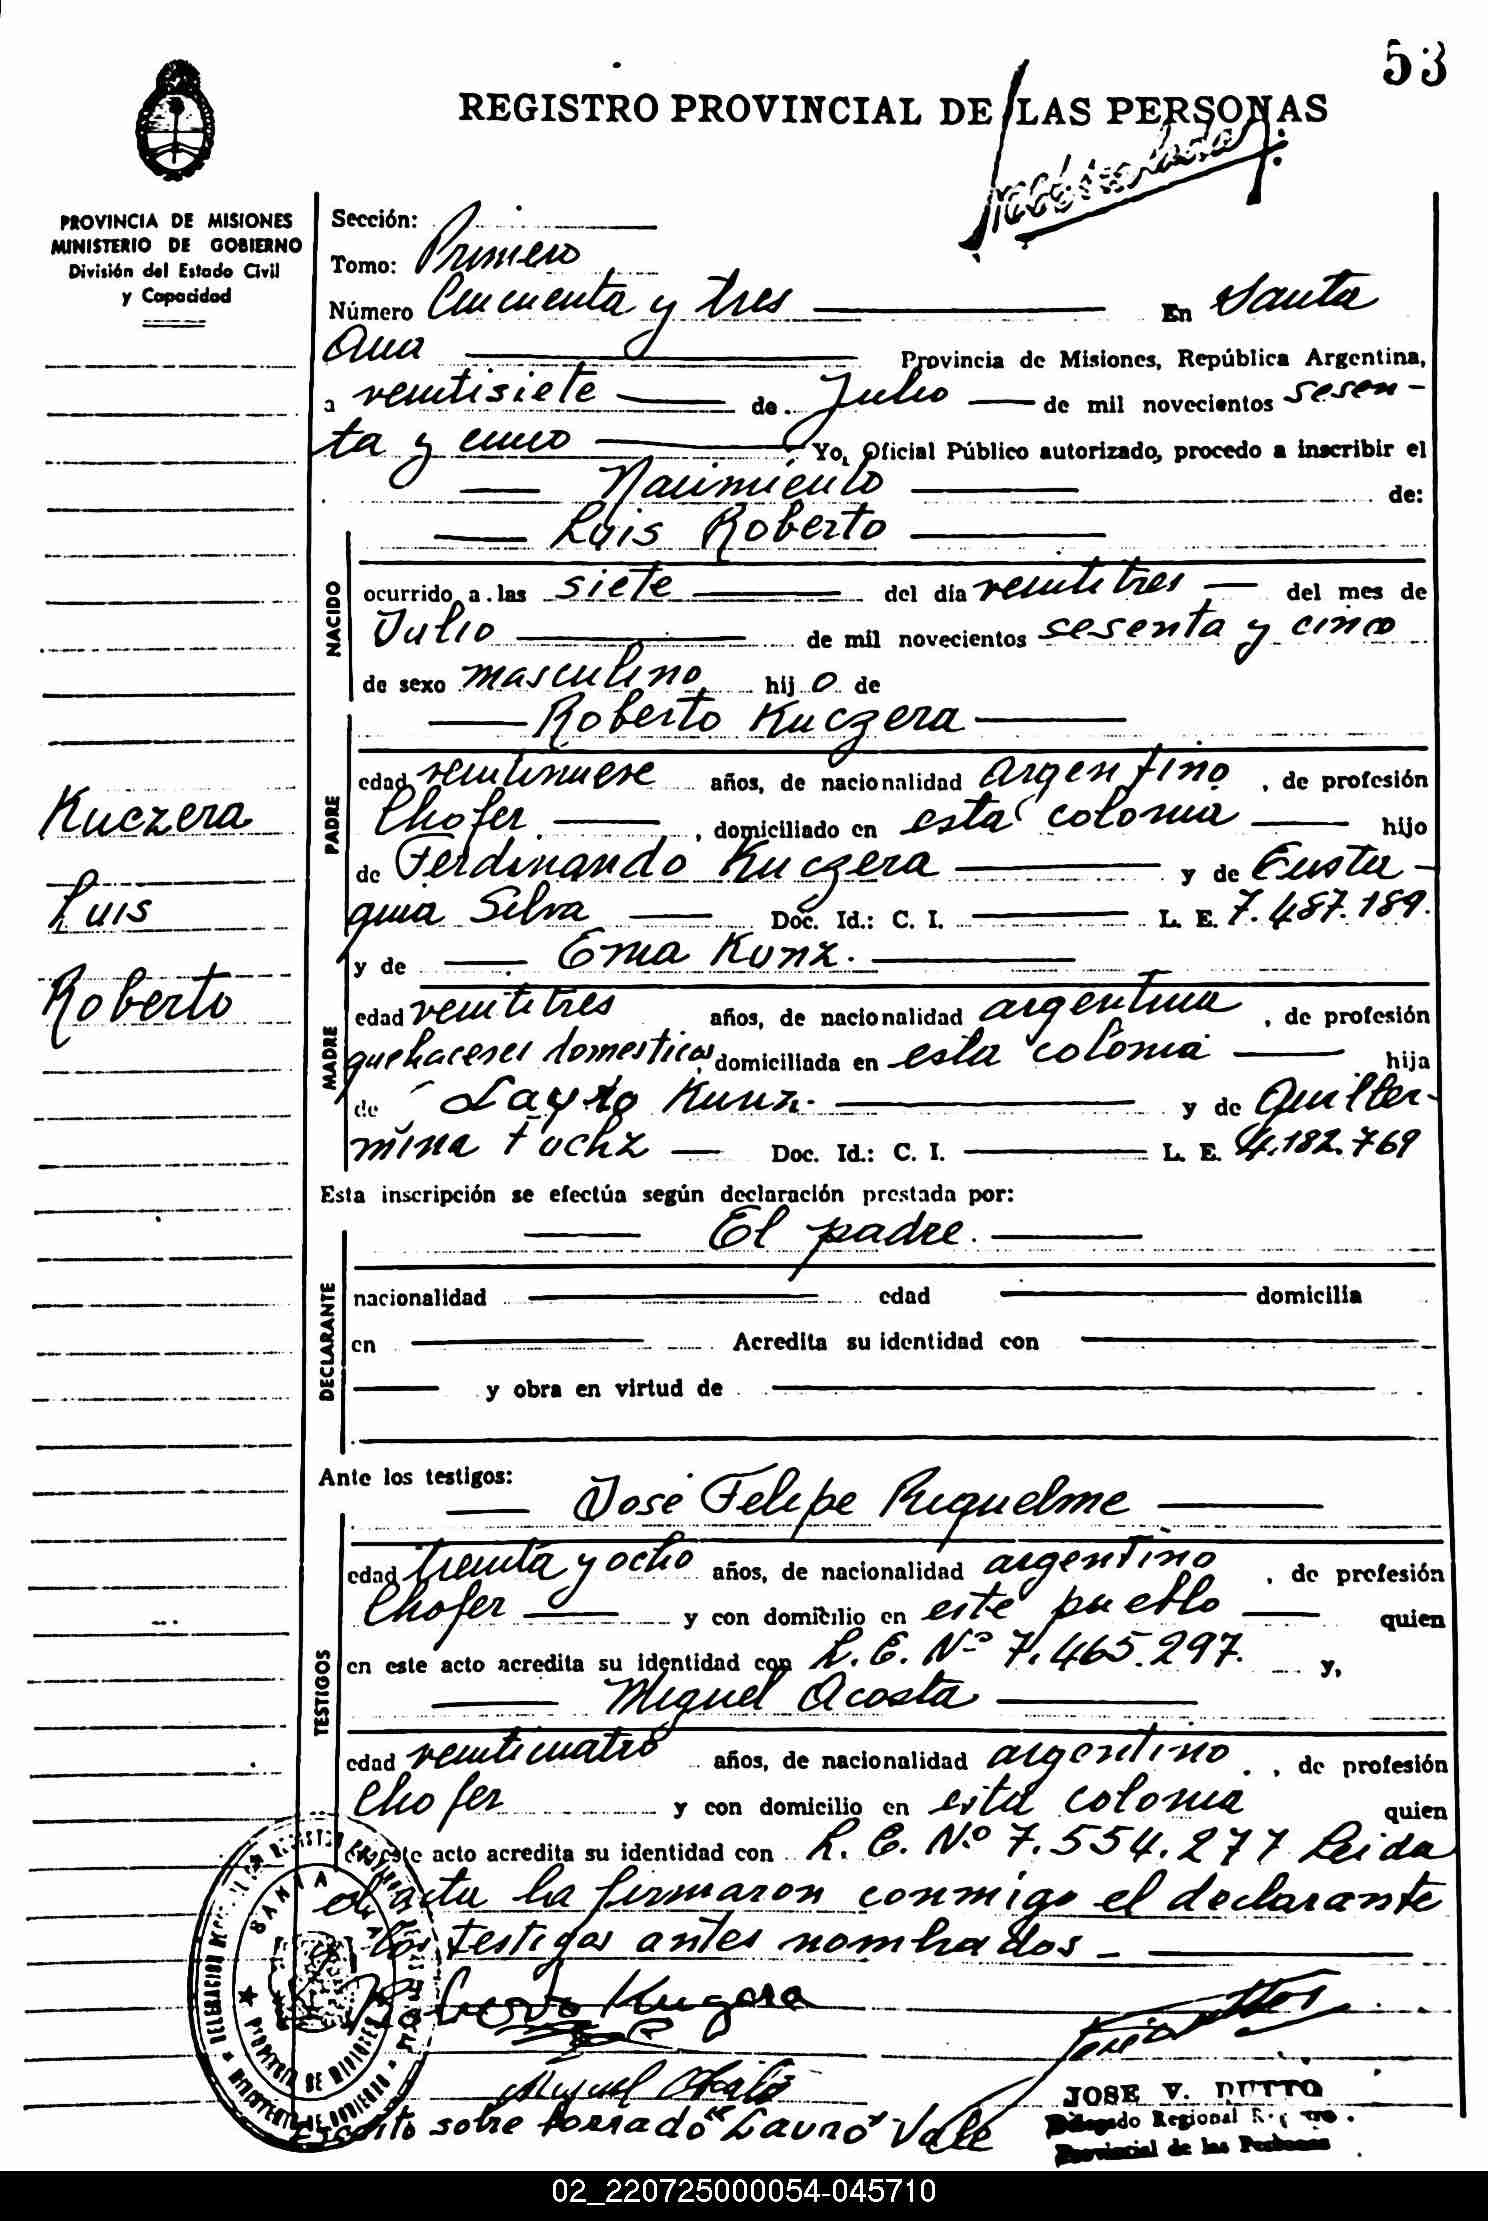 53
REGISTRO PROVINCIAL DE LAS PERSONAS
PROVINCIA DE MISIONES
MINISTERIO DE GOBIERNO
División del Estado Civil
y Capacidad
Kuczera
Luis
Roberto
Sección:
Tomo: Primero
Número Cincuenta y tres En Santa
Ana Provincia de Misiones, República Argentina,
a veintisiete de Julio de mil novecientos sesen-
ta y cinco Yo, Oficial Público autorizado, procedo a inscribir el
Nacimiento de:
Luis Roberto
NACIDO
ocurrido a las siete del día veintitres del mes de
Julio de mil novecientos sesenta y cinco
de sexo masculino hijo de
Roberto Kuczera
PADRE
edad veintinueve años, de nacionalidad argentino, de profesión
Chofer, domiciliado en esta colonia hijo
de Ferdinando Kuczera y de Eusta-
quia Silva Doc. Id.: C. I. L. E. 7.487.189.
y de Ema Kunz.
MADRE
edad veintitres años, de nacionalidad argentina, de profesión
quehaceres domesticos, domiciliada en esta colonia hija
de Kunz. y de Guiller-
mina Fuchz Doc. Id.: C. I. L. E. 4.182.769
Esta inscripción se efectúa según declaración prestada por:
El padre.
DECLARANTE
nacionalidad edad domicilia
en Acredita su identidad con
y obra en virtud de
Ante los testigos:
José Felipe Riquelme
TESTIGOS
edad treinta y ocho años, de nacionalidad argentino, de profesión
Chofer y con domicilio en este pueblo quien
en este acto acredita su identidad con L. E. Nº 7.465.297. y,
Miguel Acosta
edad veinticuatro años, de nacionalidad argentino, de profesión
Chofer y con domicilio en esta colonia quien
en este acto acredita su identidad con L. E. Nº 7.554.277 Leida
el acta la firmaron conmigo el declarante
y los testigos antes nombrados
Roberto Kuczera
Escrito sobre borrado "Lauro" Vale
JOSE V. DUTTO
Delegado Regional
Provincial de las Personas
SANTA ANA
PROVINCIA DE MISIONES
02_220725000054-045710